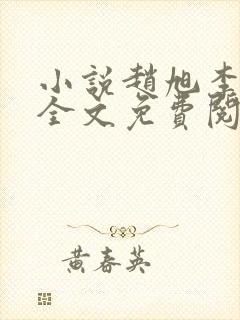 小說趙旭李
全文免費閱
黃春英